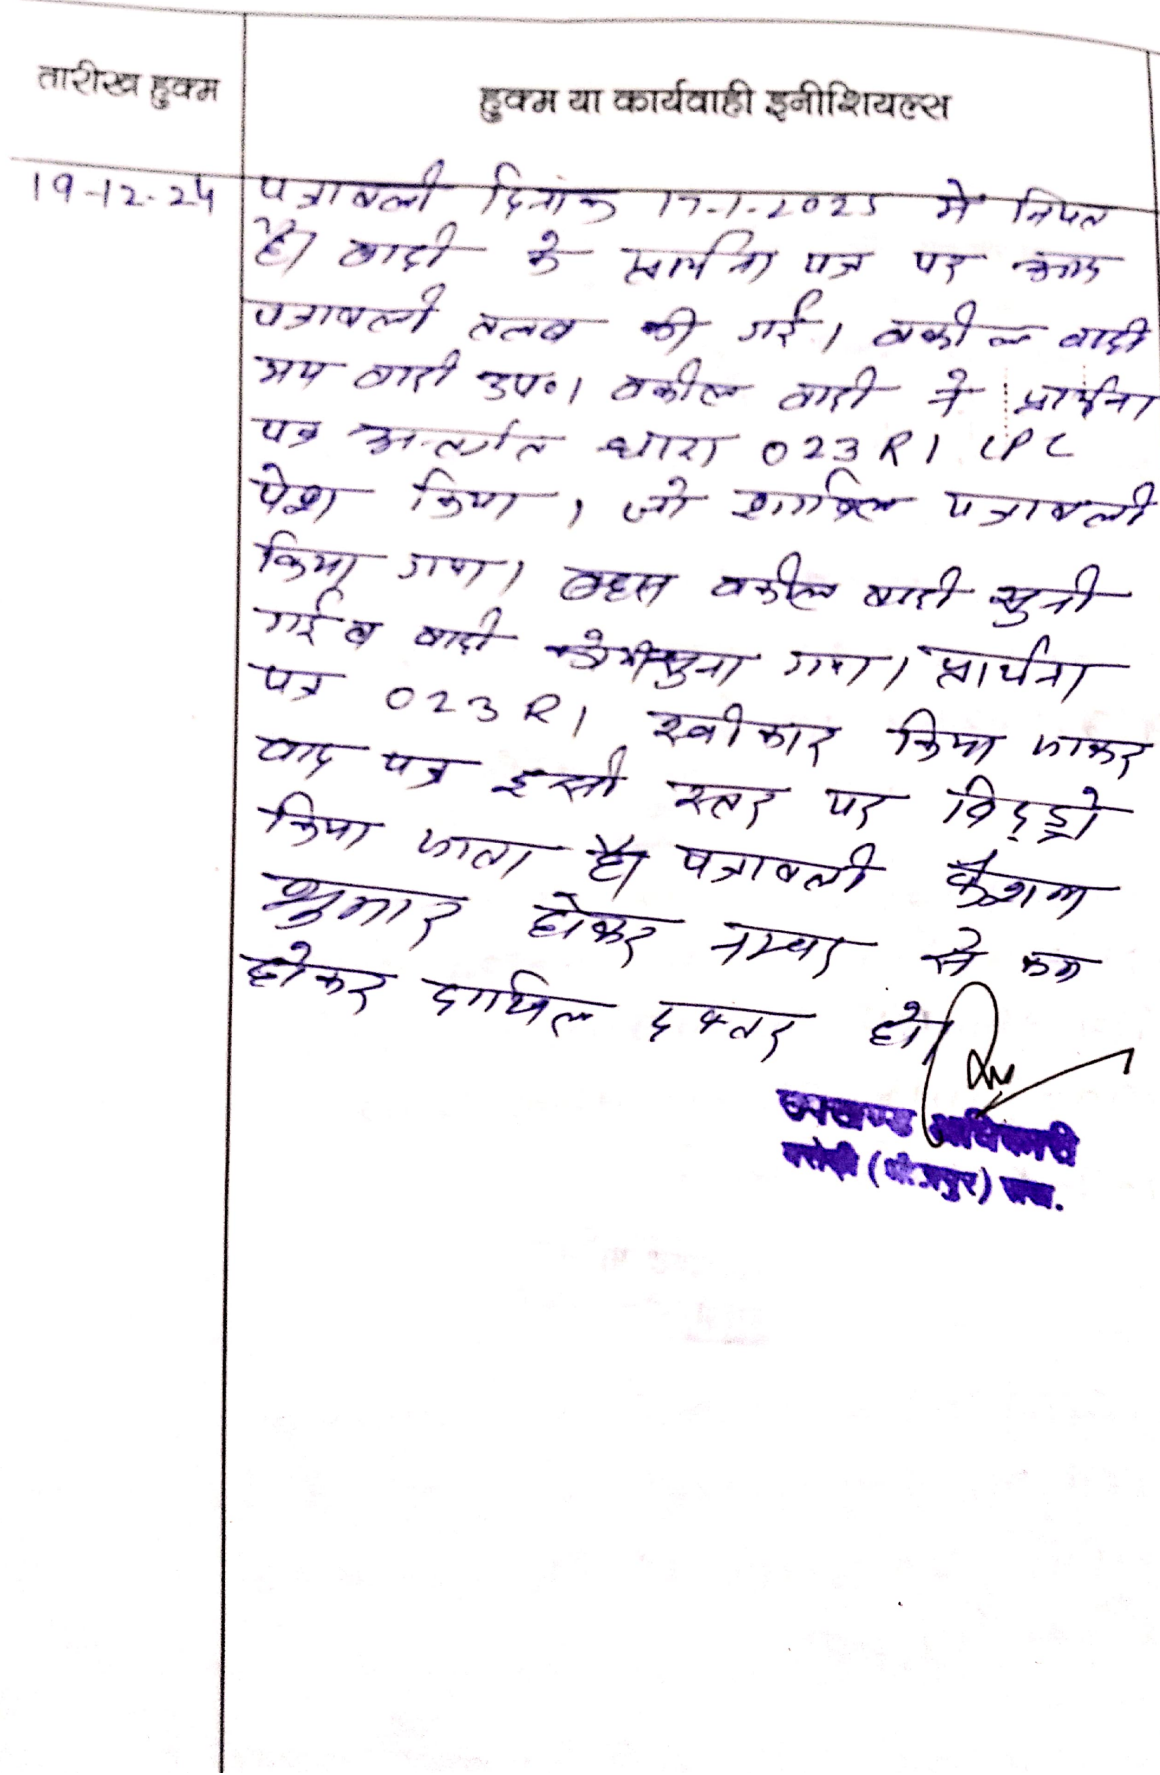 तारीख हुक्म
हुक्म या कार्यवाही इनीशियल्स
19-12-24
पत्रावली दिनांक 17-1-2025 में नियत
है। वादी के प्रार्थना पत्र पर आज
पत्रावली तलब की गई। वकील वादी
मय वादी उप०। वकील वादी ने प्रार्थना
पत्र अन्तर्गत धारा 023 R1 CPC
पेश किया, जो शामिल पत्रावली
किया गया। बहस वकील वादी सुनी
गई व वादी को भी सुना गया। प्रार्थना
पत्र 023 R1 स्वीकार किया जाकर
वाद पत्र इसी स्तर पर विद्ड्रो
किया जाता है। पत्रावली फैशल
शुमार होकर नम्बर से कम
होकर दाखिल दफ्तर हो।
उपखण्ड अधिकारी